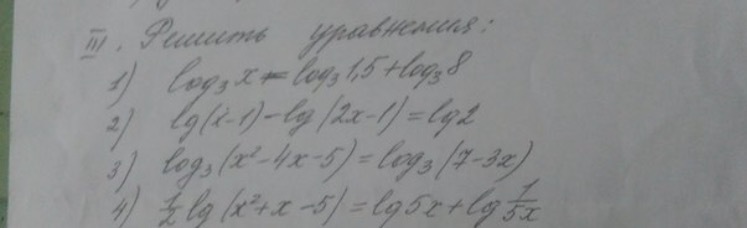 III. Решить уравнения:
1) log₃x = log₃1,5 + log₃8
2) lg(x-1) - lg(2x-1) = lg2
3) log₃(x²-4x-5) = log₃(7-3x)
4) ½ lg(x²+x-5) = lg5x + lg 1/5x